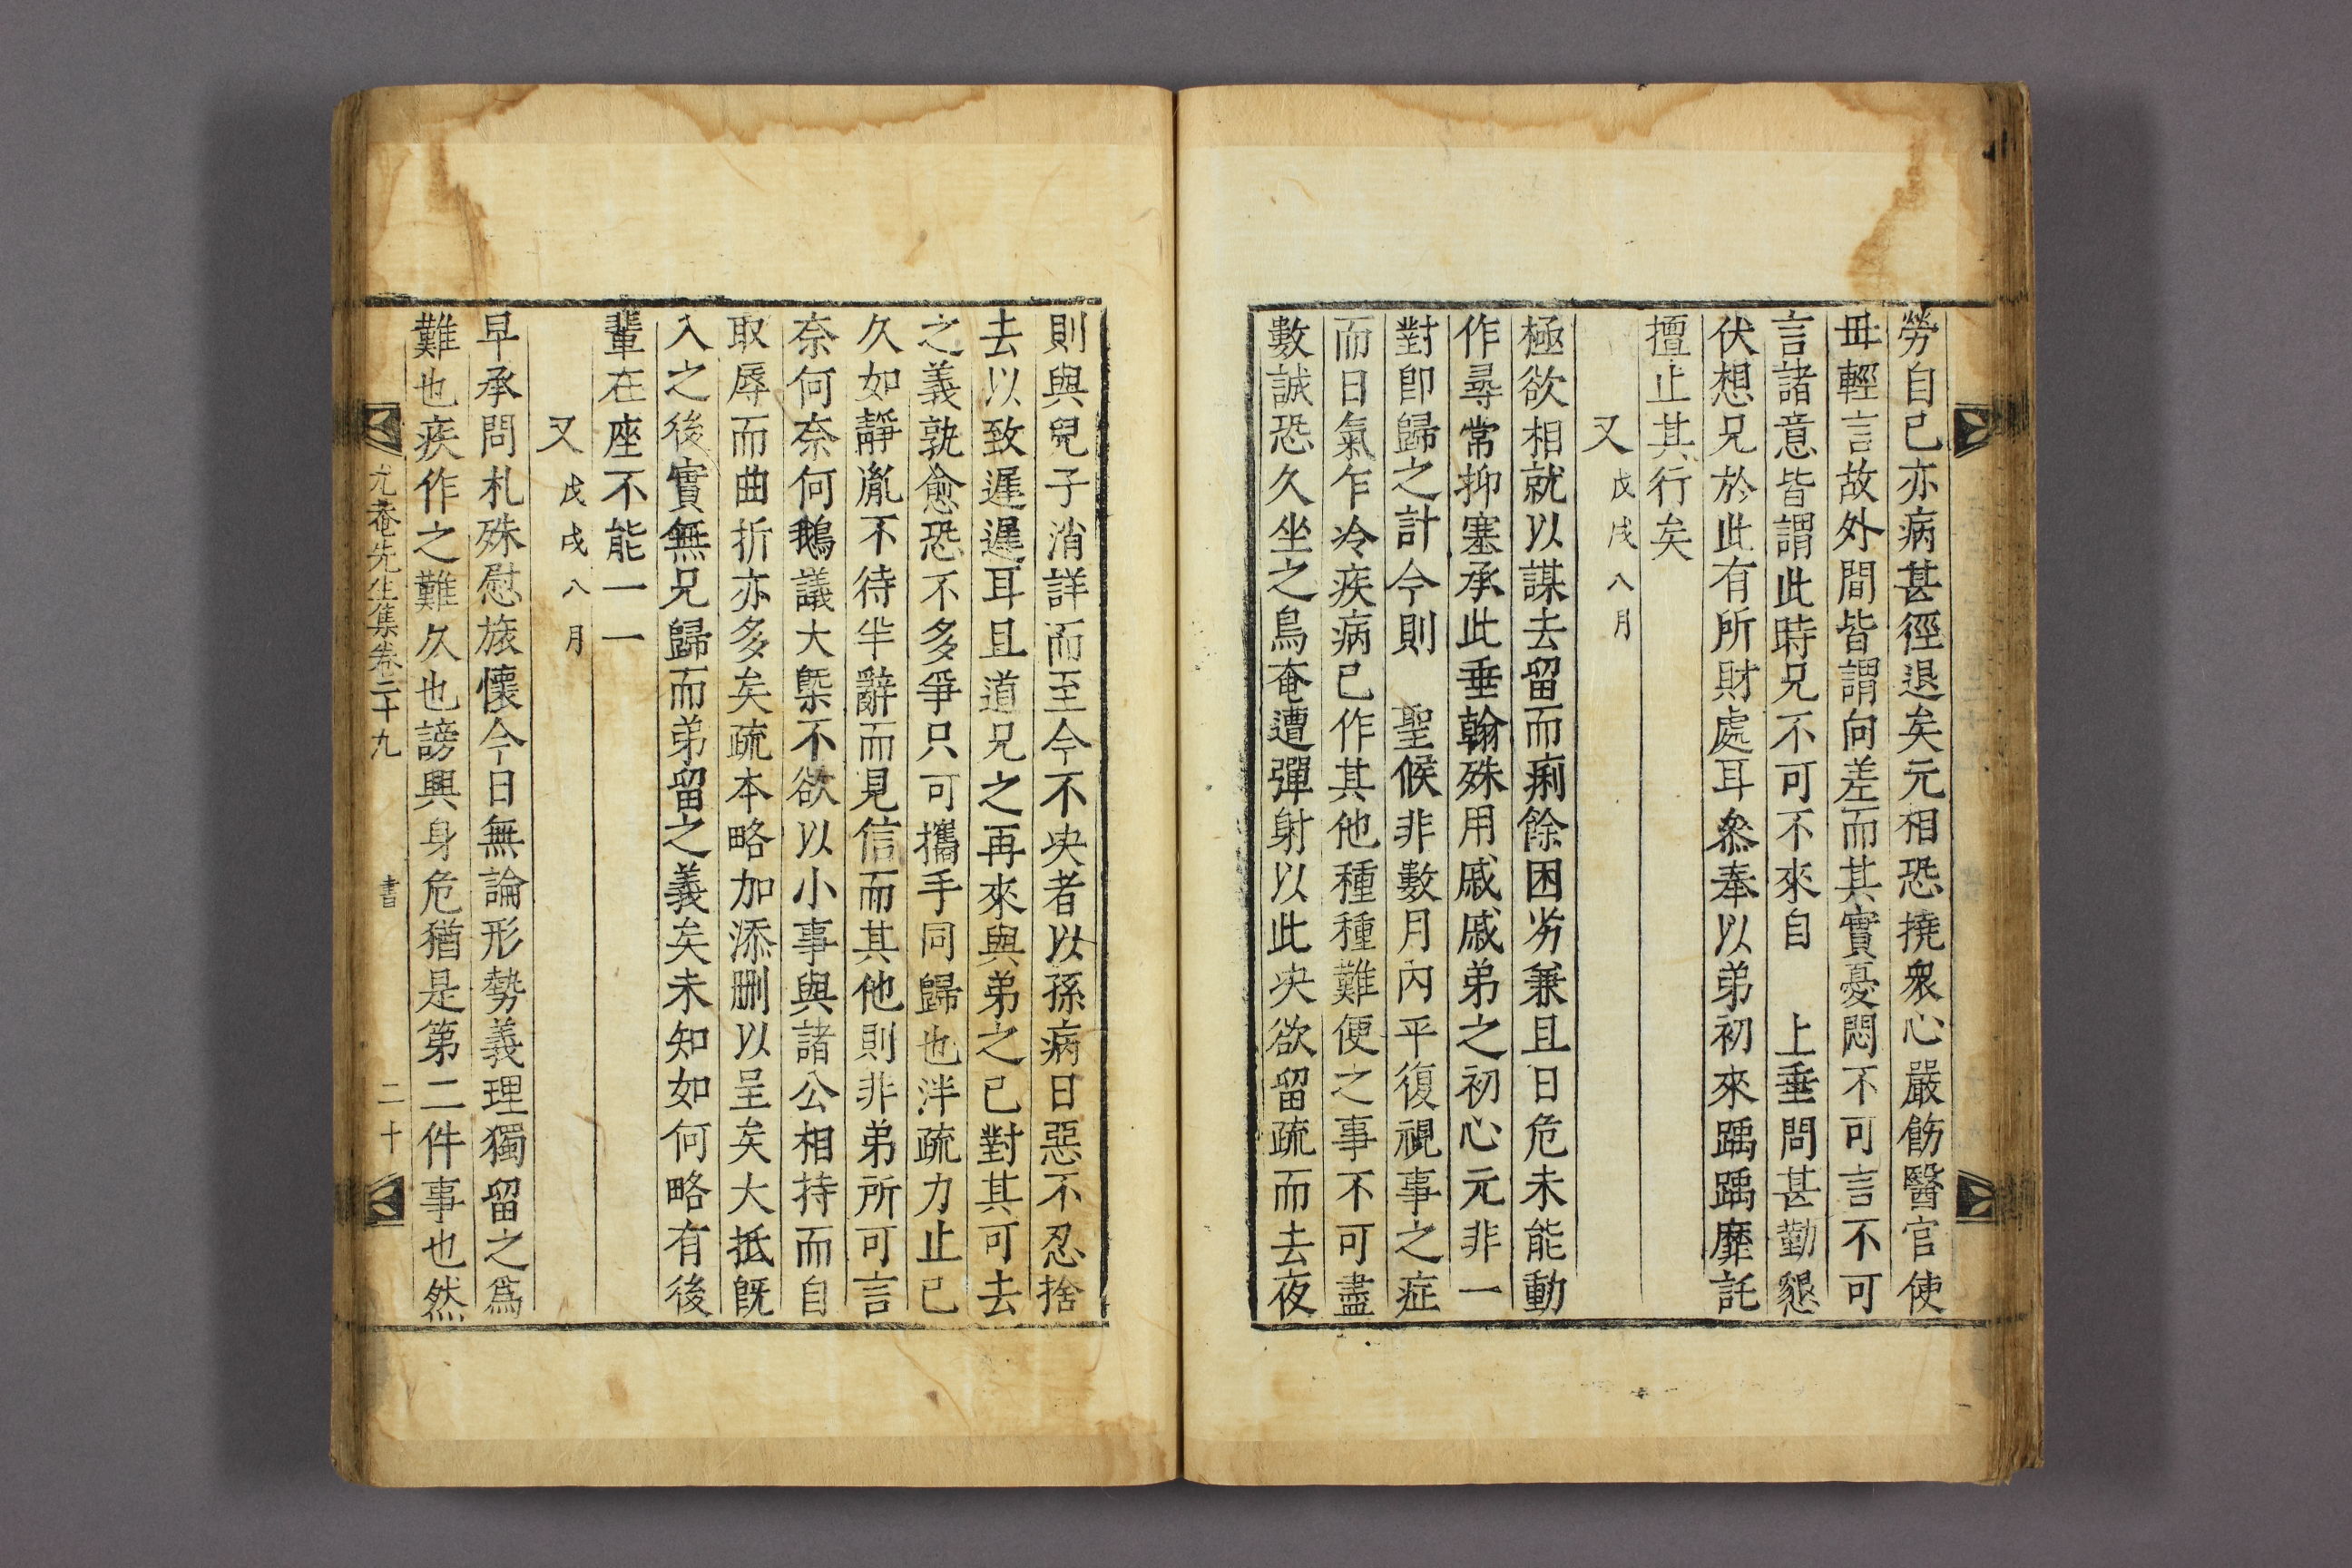 勞自已亦病甚徑退矣元相恐撓衆心嚴飭醫官使
毋輕言故外間皆謂向差而其實憂悶不可言不可
言諸意皆謂此時兄不可不來自　上垂問甚勤懇
伏想兄於此有所財處耳叅奉以弟初來踽踽靡託
擅止其行矣
又 戊戌八月
極欲相就以謀去留而痢餘困劣兼且日危未能動
作尋常抑塞承此垂翰殊用戚戚弟之初心元非一
對卽歸之計今則　聖候非數月內平復視事之症
而日氣乍冷疾病已作其他種種難便之事不可盡
數誠恐久坐之鳥奄遭彈射以此决欲留疏而去夜
則與兒子消詳而至今不决者以孫病日惡不忍捨
去以致遲遲耳且道兄之再來與弟之已對其可去
之義孰愈恐不多爭只可攜手同歸也泮疏力止已
久如靜胤不待半辭而見信而其他則非弟所可言
奈何奈何鵝議大槩不欲以小事與諸公相持而自
取辱而曲折亦多矣疏本略加添刪以呈矣大抵旣
入之後實無兄歸而弟留之義矣未知如何略有後
輩在座不能一一
又 戊戌八月
早承問札殊慰旅懷今日無論形勢義理獨留之爲
難也疾作之難久也謗興身危猶是第二件事也然
尤菴先生集卷二十九　書　二十